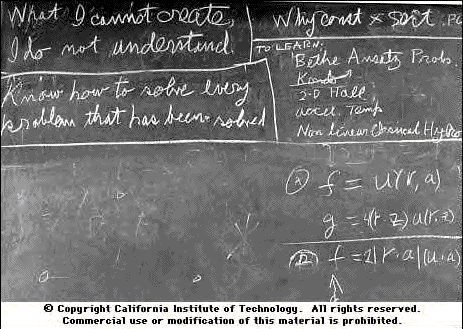 What I cannot create,
I do not understand.
Know how to solve every
problem that has been solved
Why const × sort . Po
TO LEARN:
Bethe Ansatz Probs.
Kondo
2-D Hall
accel. Temp
Non Linear Classical Hydro
(A) f = U(r, a)
g = 4(r·z) u(r, z)
(B) f = 2|r·a|(u·a)
© Copyright California Institute of Technology. All rights reserved.
Commercial use or modification of this material is prohibited.